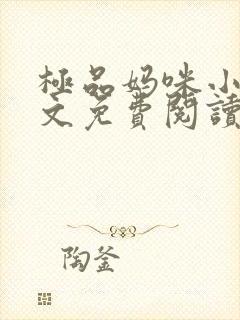 極品妈咪小
文免費閱讀
陶釜